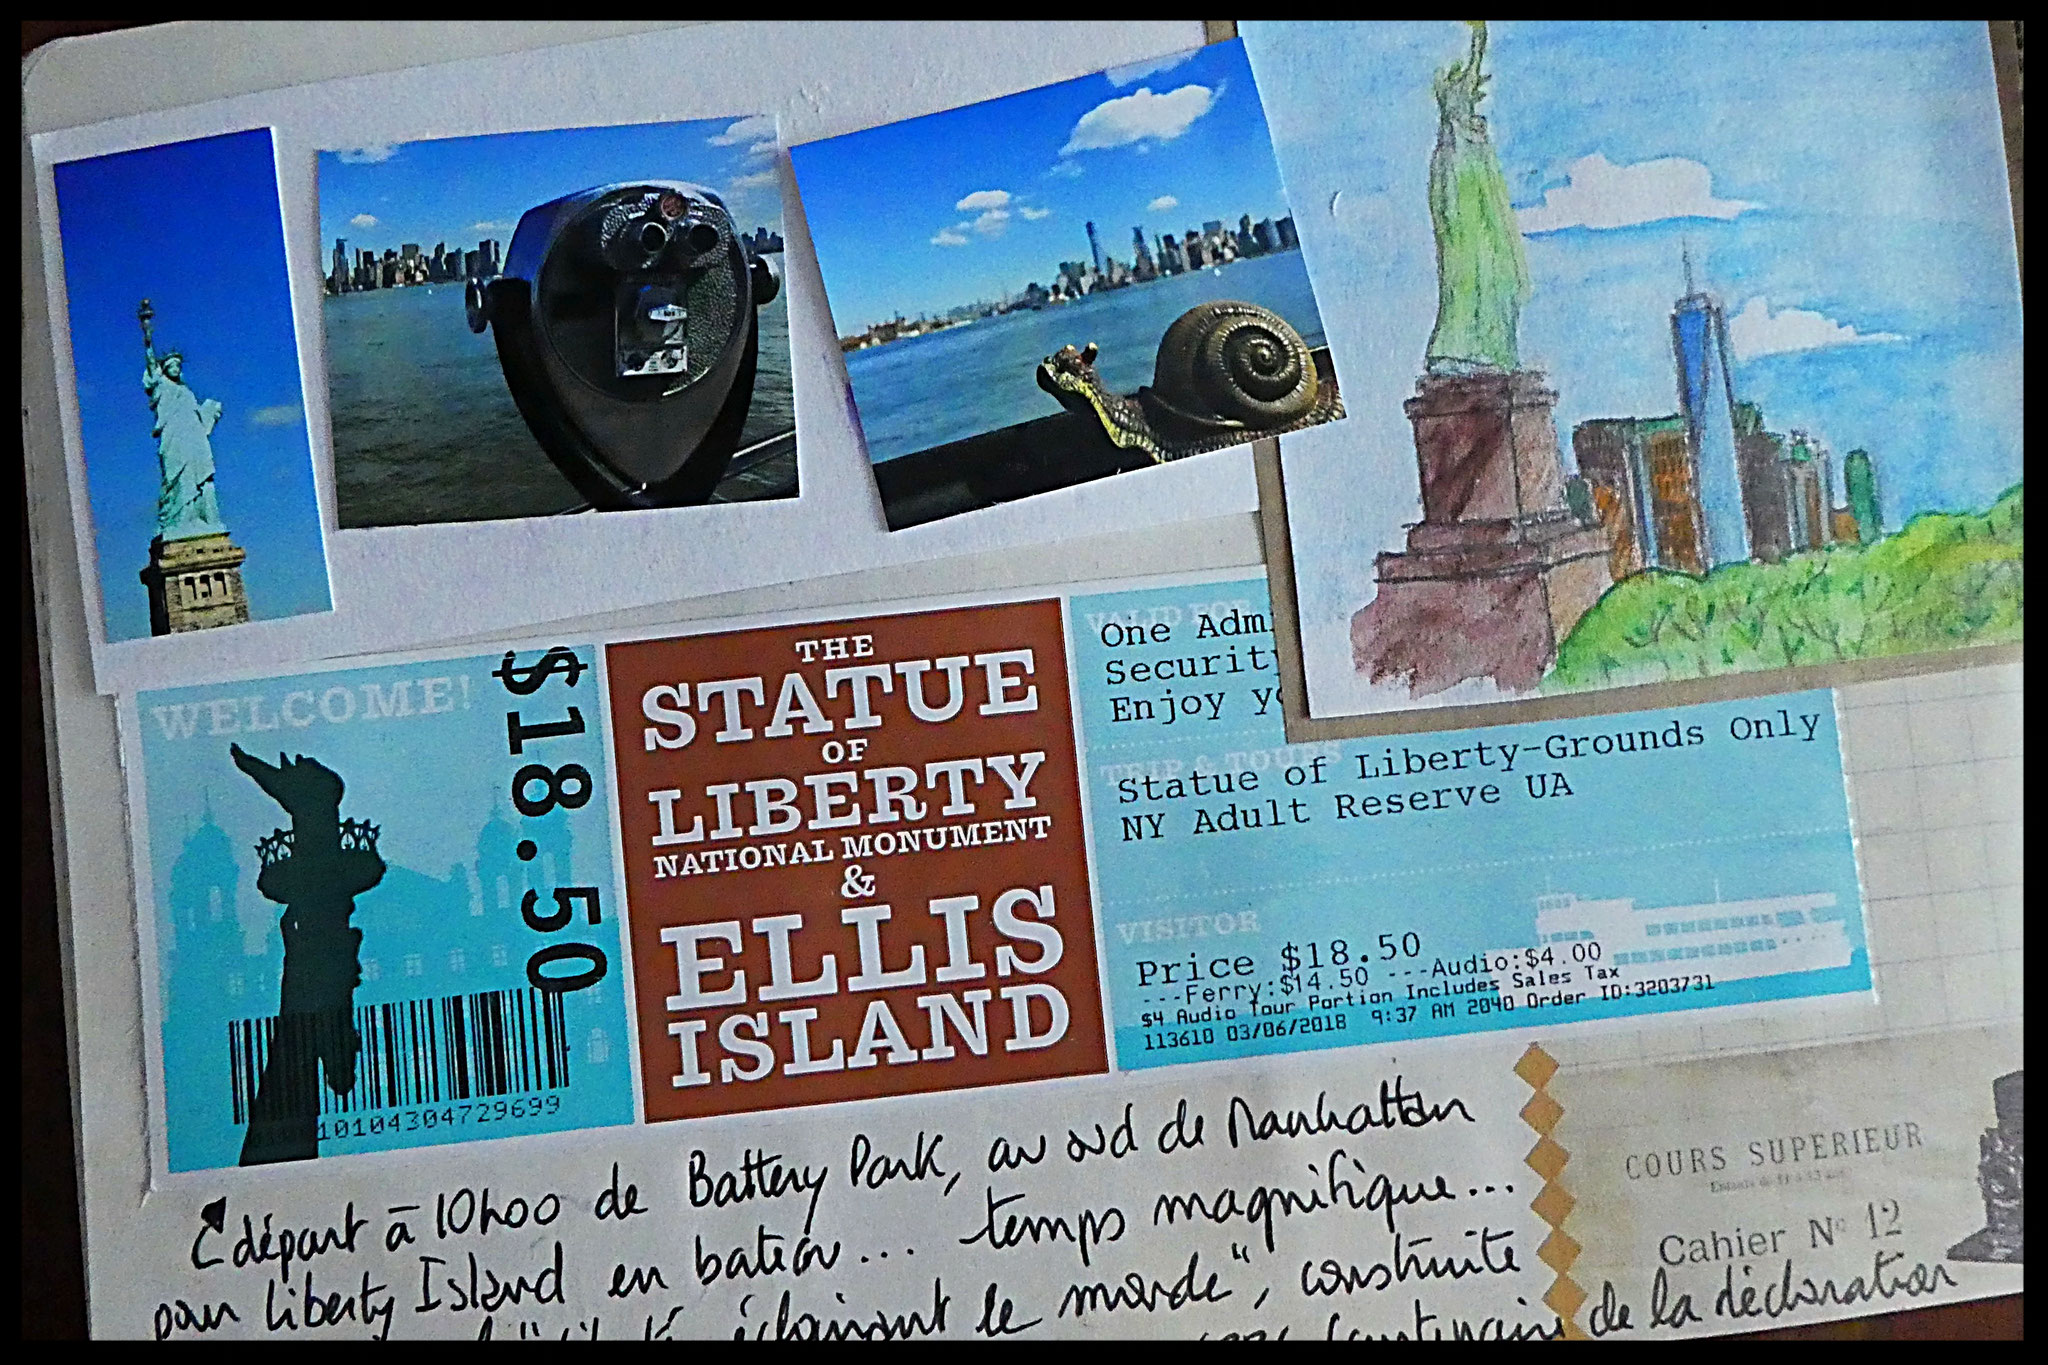 WELCOME!
$18.50
10104304729699
THE
STATUE
OF
LIBERTY
NATIONAL MONUMENT
&
ELLIS
ISLAND
VALID FOR
One Adm
Security
Enjoy y
TRIP & TOURS
Statue of Liberty-Grounds Only
NY Adult Reserve UA
VISITOR
Price $18.50
---Ferry:$14.50 ---Audio:$4.00
$4 Audio Tour Portion Includes Sales Tax
113610 03/06/2018 9:37 AM 2040 Order ID:3203731
départ à 10h00 de Battery Park, au sud de Manhattan
pour Liberty Island en bateau... temps magnifique...
éclairant le monde", construite
centenaire de la déclaration
COURS SUPERIEUR
Cahier No 12